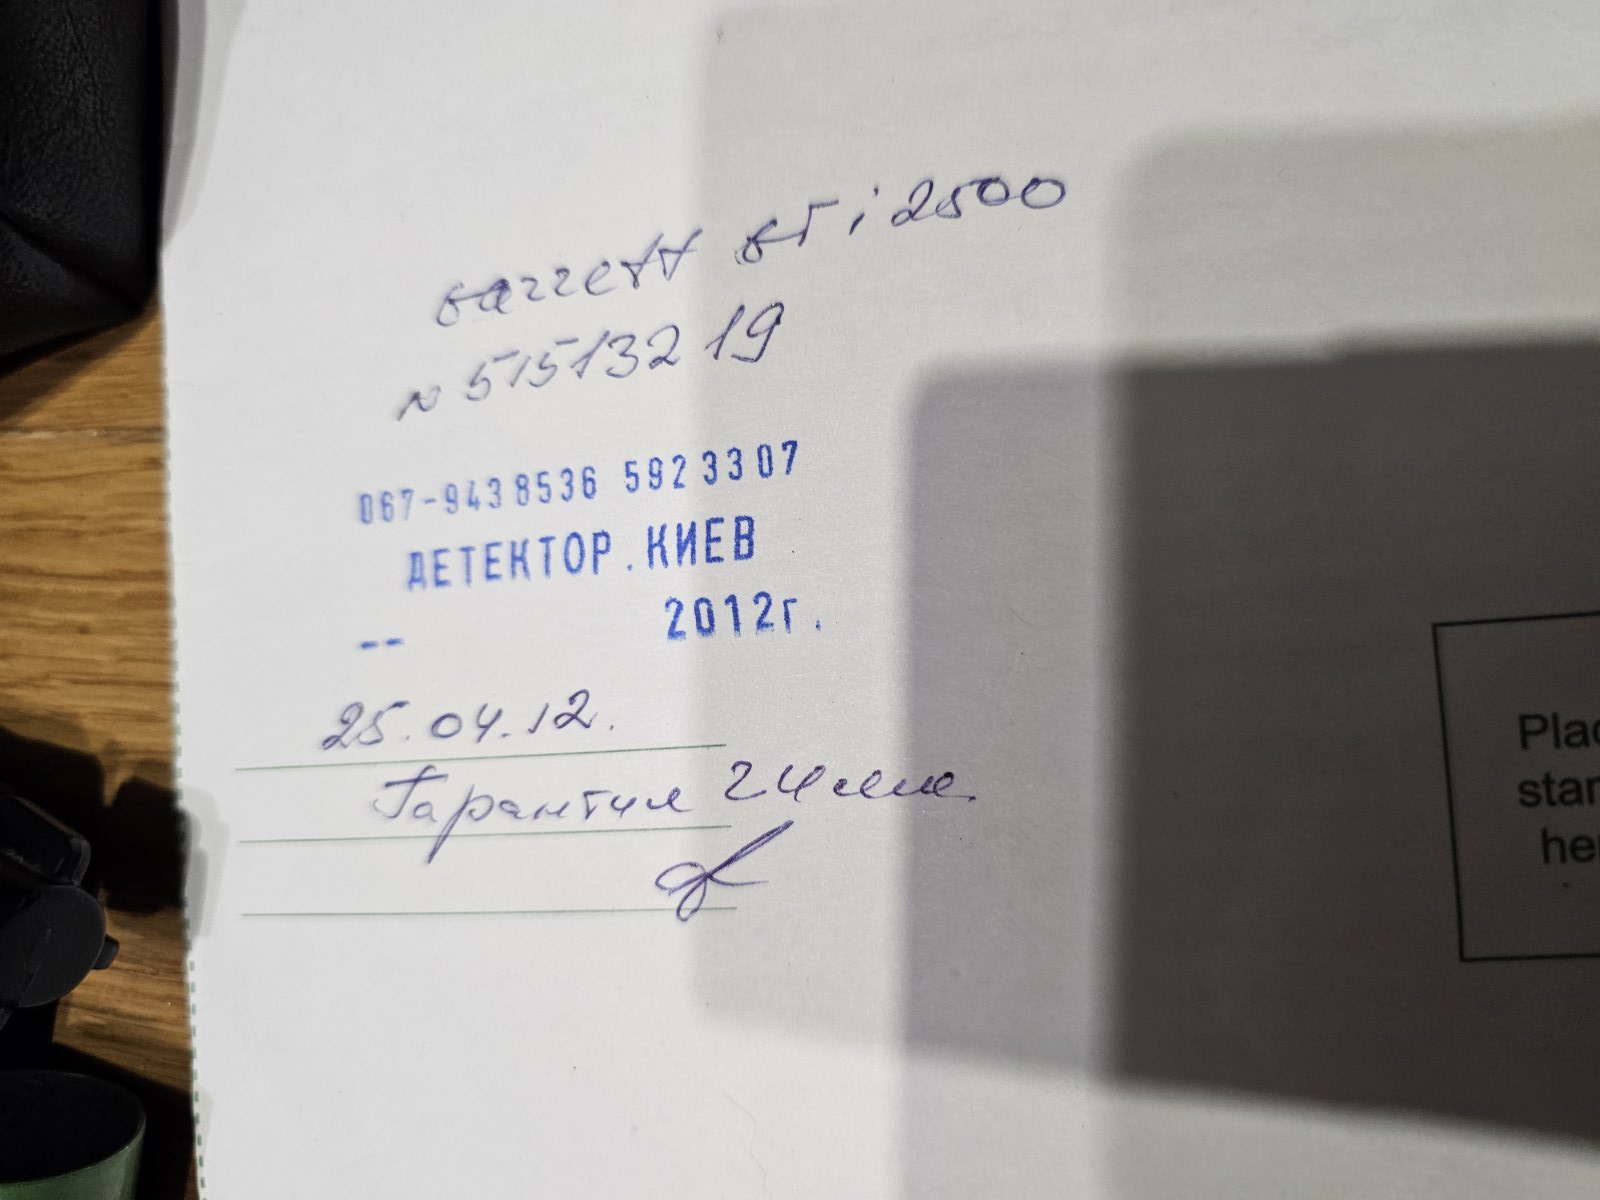 Garrett GTi 2500
N 51513219
067-9438536 5923307
ДЕТЕКТОР.КИЕВ
-- 2012г.
25.04.12.
Гарантия 24 мес.
Plac
star
he